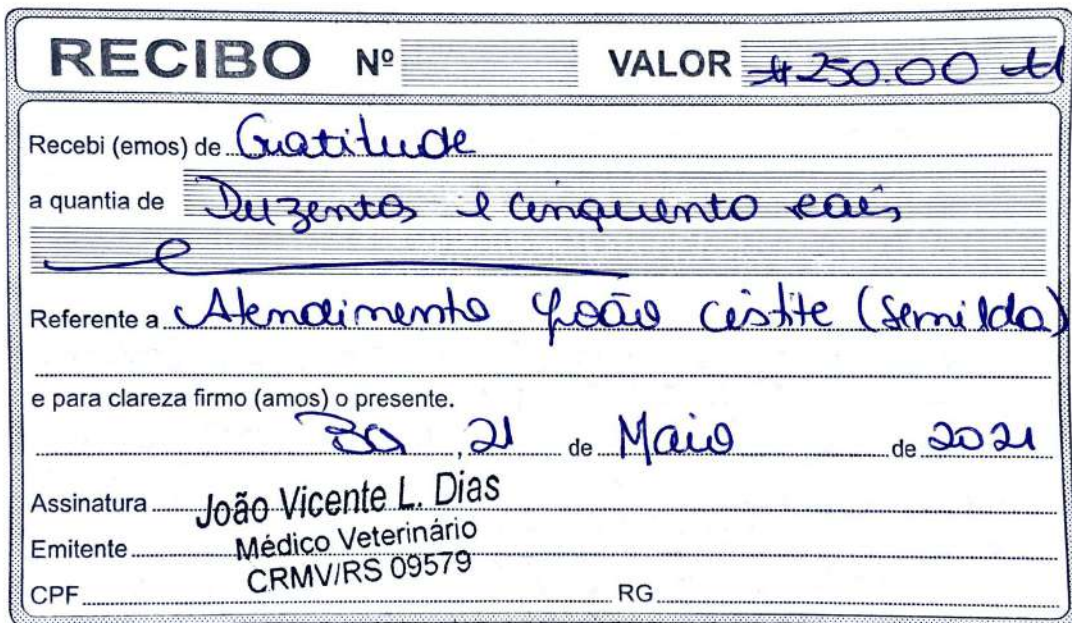 RECIBO Nº VALOR #250.00 #
Recebi (emos) de Gratitude
a quantia de Duzentos e cinquento eais
Referente a Atendimento João cistite (Semilda)
e para clareza firmo (amos) o presente.
21 de Maio de 2021
Assinatura João Vicente L. Dias
Emitente Médico Veterinário
CRMV/RS 09579
CPF RG